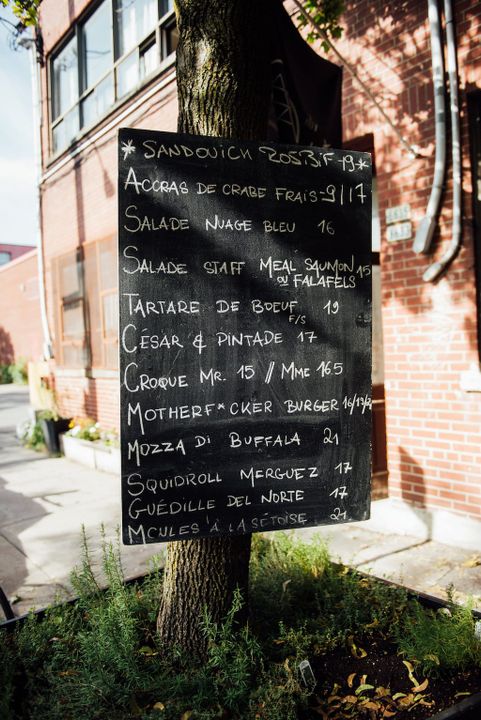 * SANDOUICH ROSBIF -19 *
ACCRAS DE CRABE FRAIS-9/17
SALADE NUAGE BLEU 16
SALADE STAFF MEAL SAUMON 15
OU FALAFELS
TARTARE DE BOEUF 19
F/S
CÉSAR & PINTADE 17
CROQUE MR. 15 // MME 16.5
MOTHERF*CKER BURGER 16/17/
MOZZA DI BUFFALA 21
SQUIDROLL MERGUEZ 17
GUÉDILLE DEL NORTE 17
MOULES À LA SÉTOISE 21